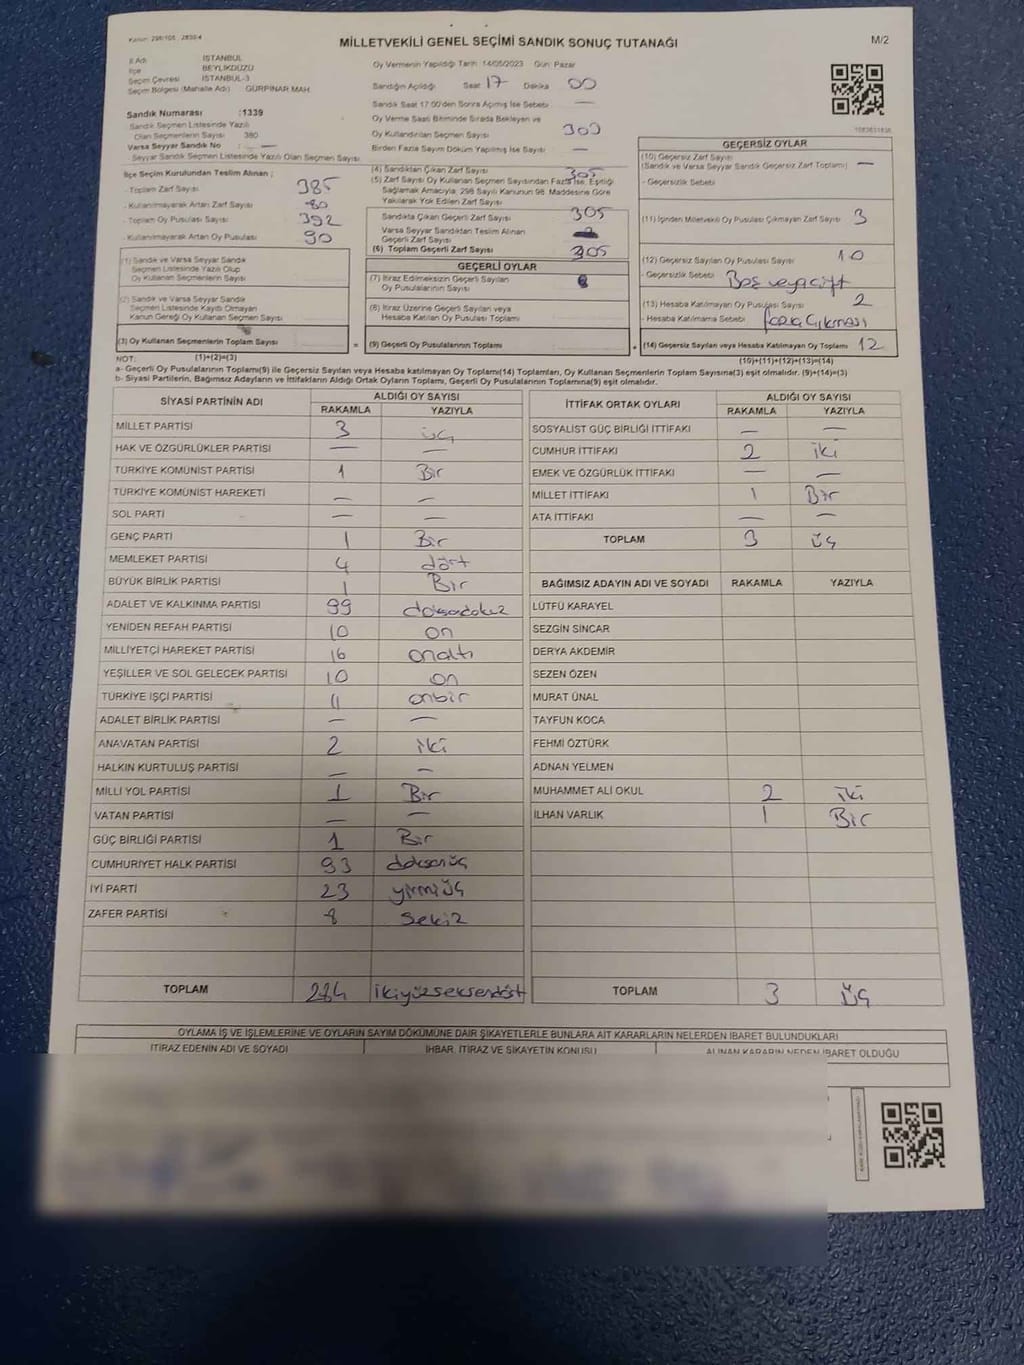 MİLLETVEKİLİ GENEL SEÇİMİ SANDIK SONUÇ TUTANAĞI
M/2
İl Adı İSTANBUL
İlçe BEYLİKDÜZÜ
Seçim Çevresi İSTANBUL-3
Seçim Bölgesi (Mahalle Adı) GÜRPINAR MAH.
Sandık Numarası :1339
Sandık Seçmen Listesinde Yazılı
Olan Seçmenlerin Sayısı 380
Varsa Seyyar Sandık No : —
- Seyyar Sandık Seçmen Listesinde Yazılı Olan Seçmen Sayısı
İlçe Seçim Kurulundan Teslim Alınan ;
- Toplam Zarf Sayısı 385
- Kullanılmayarak Artan Zarf Sayısı 80
- Toplam Oy Pusulası Sayısı 392
- Kullanılmayarak Artan Oy Pusulası 90
(1) Sandık ve Varsa Seyyar Sandık
Seçmen Listesinde Yazılı Olup
Oy Kullanan Seçmenlerin Sayısı
(2) Sandık ve Varsa Seyyar Sandık
Seçmen Listesinde Kaydı Olmayan
Kanun Gereği Oy Kullanan Seçmen Sayısı
(3) Oy Kullanan Seçmenlerin Toplam Sayısı
Oy Vermenin Yapıldığı Tarih 14/05/2023 Gün: Pazar
Sandığın Açıldığı Saat 17 Dakika 00
Sandık Saat 17:00'den Sonra Açılmış İse Sebebi —
Oy Verme Saati Bitiminde Sırada Bekleyen ve
Oy Kullandırılan Seçmen Sayısı 303
Birden Fazla Sayım Döküm Yapılmış İse Sayısı —
(4) Sandıktan Çıkan Zarf Sayısı 305
(5) Zarf Sayısı Oy Kullanan Seçmen Sayısından Fazla İse, Eşitliği
Sağlamak Amacıyla; 298 Sayılı Kanunun 98. Maddesine Göre
Yakılarak Yok Edilen Zarf Sayısı
Sandıkta Çıkan Geçerli Zarf Sayısı 305
Varsa Seyyar Sandıktan Teslim Alınan
Geçerli Zarf Sayısı
(6) Toplam Geçerli Zarf Sayısı 305
GEÇERLİ OYLAR
(7) İtiraz Edilmeksizin Geçerli Sayılan
Oy Pusulalarının Sayısı
(8) İtiraz Üzerine Geçerli Sayılan veya
Hesaba Katılan Oy Pusulası Toplamı
= (9) Geçerli Oy Pusulalarının Toplamı
GEÇERSİZ OYLAR
(10) Geçersiz Zarf Sayısı
(Sandık ve Varsa Seyyar Sandık Geçersiz Zarf Toplamı) —
- Geçersizlik Sebebi
(11) İçinden Milletvekili Oy Pusulası Çıkmayan Zarf Sayısı 3
(12) Geçersiz Sayılan Oy Pusulası Sayısı 10
- Geçersizlik Sebebi Boş veya çift
(13) Hesaba Katılmayan Oy Pusulası Sayısı 2
- Hesaba Katılmama Sebebi fazla çıkması
+ (14) Geçersiz Sayılan veya Hesaba Katılmayan Oy Toplamı 12
NOT: (1)+(2)=(3) (10)+(11)+(12)+(13)=(14)
a- Geçerli Oy Pusulalarının Toplamı(9) ile Geçersiz Sayılan veya Hesaba katılmayan Oy Toplamı(14) Toplamları, Oy Kullanan Seçmenlerin Toplam Sayısına(3) eşit olmalıdır. (9)+(14)=(3)
b- Siyasi Partilerin, Bağımsız Adayların ve İttifakların Aldığı Ortak Oyların Toplamı, Geçerli Oy Pusulalarının Toplamına(9) eşit olmalıdır.
SİYASİ PARTİNİN ADI ALDIĞI OY SAYISI
RAKAMLA YAZIYLA
MİLLET PARTİSİ 3 üç
HAK VE ÖZGÜRLÜKLER PARTİSİ — —
TÜRKİYE KOMÜNİST PARTİSİ 1 Bir
TÜRKİYE KOMÜNİST HAREKETİ — —
SOL PARTİ — —
GENÇ PARTİ 1 Bir
MEMLEKET PARTİSİ 4 dört
BÜYÜK BİRLİK PARTİSİ 1 Bir
ADALET VE KALKINMA PARTİSİ 99 doksandokuz
YENİDEN REFAH PARTİSİ 10 on
MİLLİYETÇİ HAREKET PARTİSİ 16 onaltı
YEŞİLLER VE SOL GELECEK PARTİSİ 10 on
TÜRKİYE İŞÇİ PARTİSİ 11 onbir
ADALET BİRLİK PARTİSİ — —
ANAVATAN PARTİSİ 2 iki
HALKIN KURTULUŞ PARTİSİ — —
MİLLİ YOL PARTİSİ 1 Bir
VATAN PARTİSİ — —
GÜÇ BİRLİĞİ PARTİSİ 1 Bir
CUMHURİYET HALK PARTİSİ 93 doksanüç
İYİ PARTİ 23 yirmiüç
ZAFER PARTİSİ 8 sekiz
TOPLAM 284 ikiyüzseksendört
İTTİFAK ORTAK OYLARI ALDIĞI OY SAYISI
RAKAMLA YAZIYLA
SOSYALİST GÜÇ BİRLİĞİ İTTİFAKI — —
CUMHUR İTTİFAKI 2 iki
EMEK VE ÖZGÜRLÜK İTTİFAKI — —
MİLLET İTTİFAKI 1 Bir
ATA İTTİFAKI — —
TOPLAM 3 üç
BAĞIMSIZ ADAYIN ADI VE SOYADI RAKAMLA YAZIYLA
LÜTFÜ KARAYEL
SEZGİN SİNCAR
DERYA AKDEMİR
SEZEN ÖZEN
MURAT ÜNAL
TAYFUN KOCA
FEHMİ ÖZTÜRK
ADNAN YELMEN
MUHAMMET ALİ OKUL 2 iki
İLHAN VARLIK 1 Bir
TOPLAM 3 üç
OYLAMA İŞ VE İŞLEMLERİNE VE OYLARIN SAYIM DÖKÜMÜNE DAİR ŞİKAYETLERLE BUNLARA AİT KARARLARIN NELERDEN İBARET BULUNDUKLARI
İTİRAZ EDENİN ADI VE SOYADI İHBAR, İTİRAZ VE ŞİKAYETİN KONUSU ALINAN KARARIN NEDEN İBARET OLDUĞU